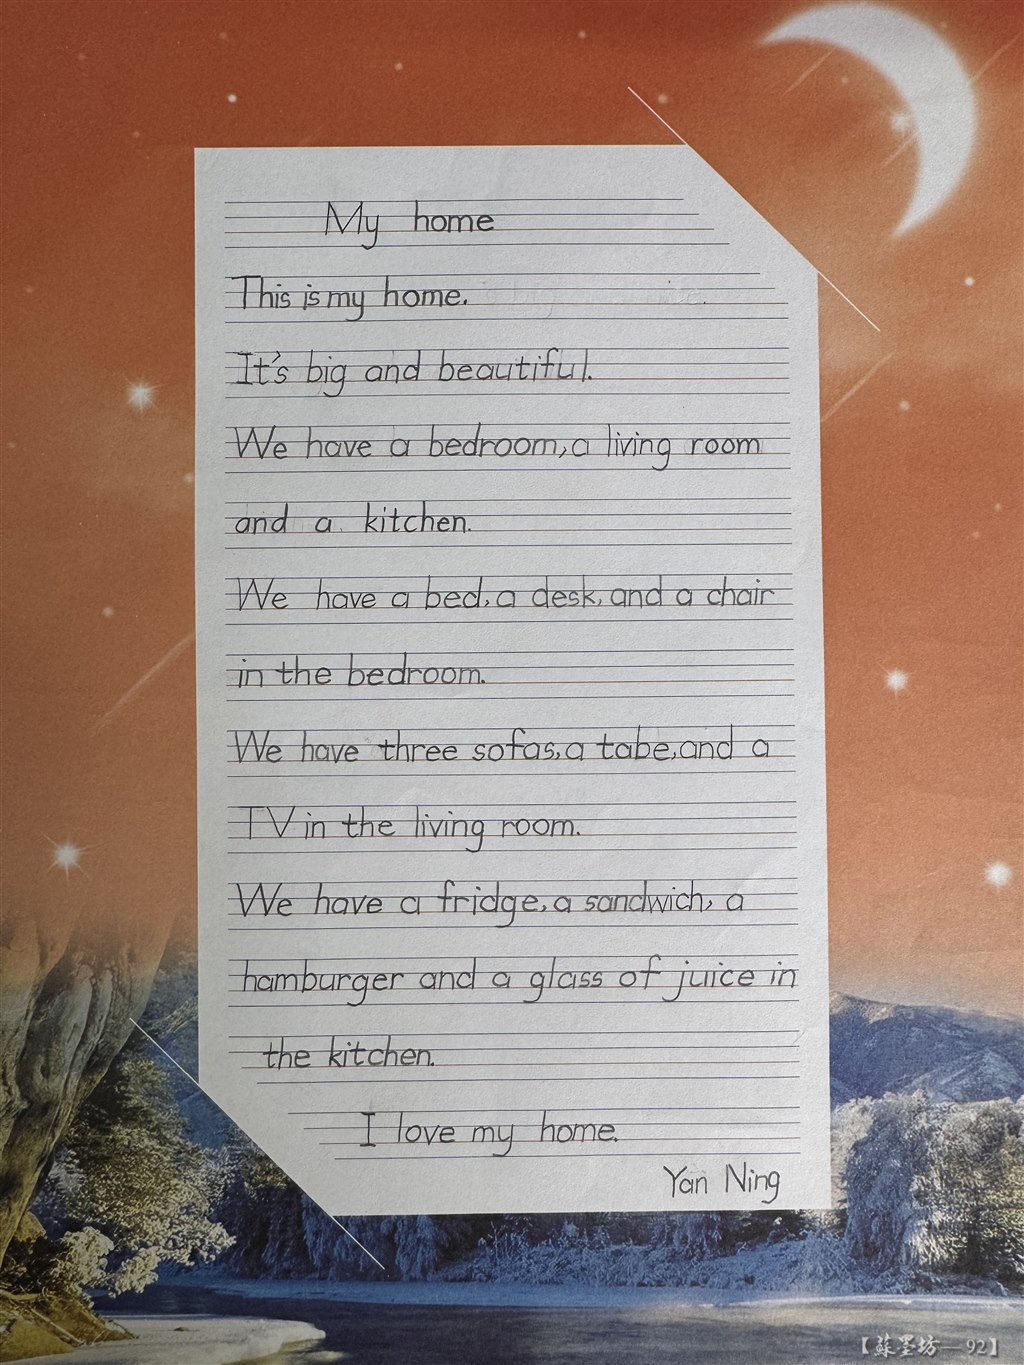 My home
This is my home.
It's big and beautiful.
We have a bedroom, a living room
and a kitchen.
We have a bed, a desk, and a chair
in the bedroom.
We have three sofas, a tabe, and a
TV in the living room.
We have a fridge, a sandwich, a
hamburger and a glass of juice in
the kitchen.
I love my home.
Yan Ning
【蘇墨坊—92】